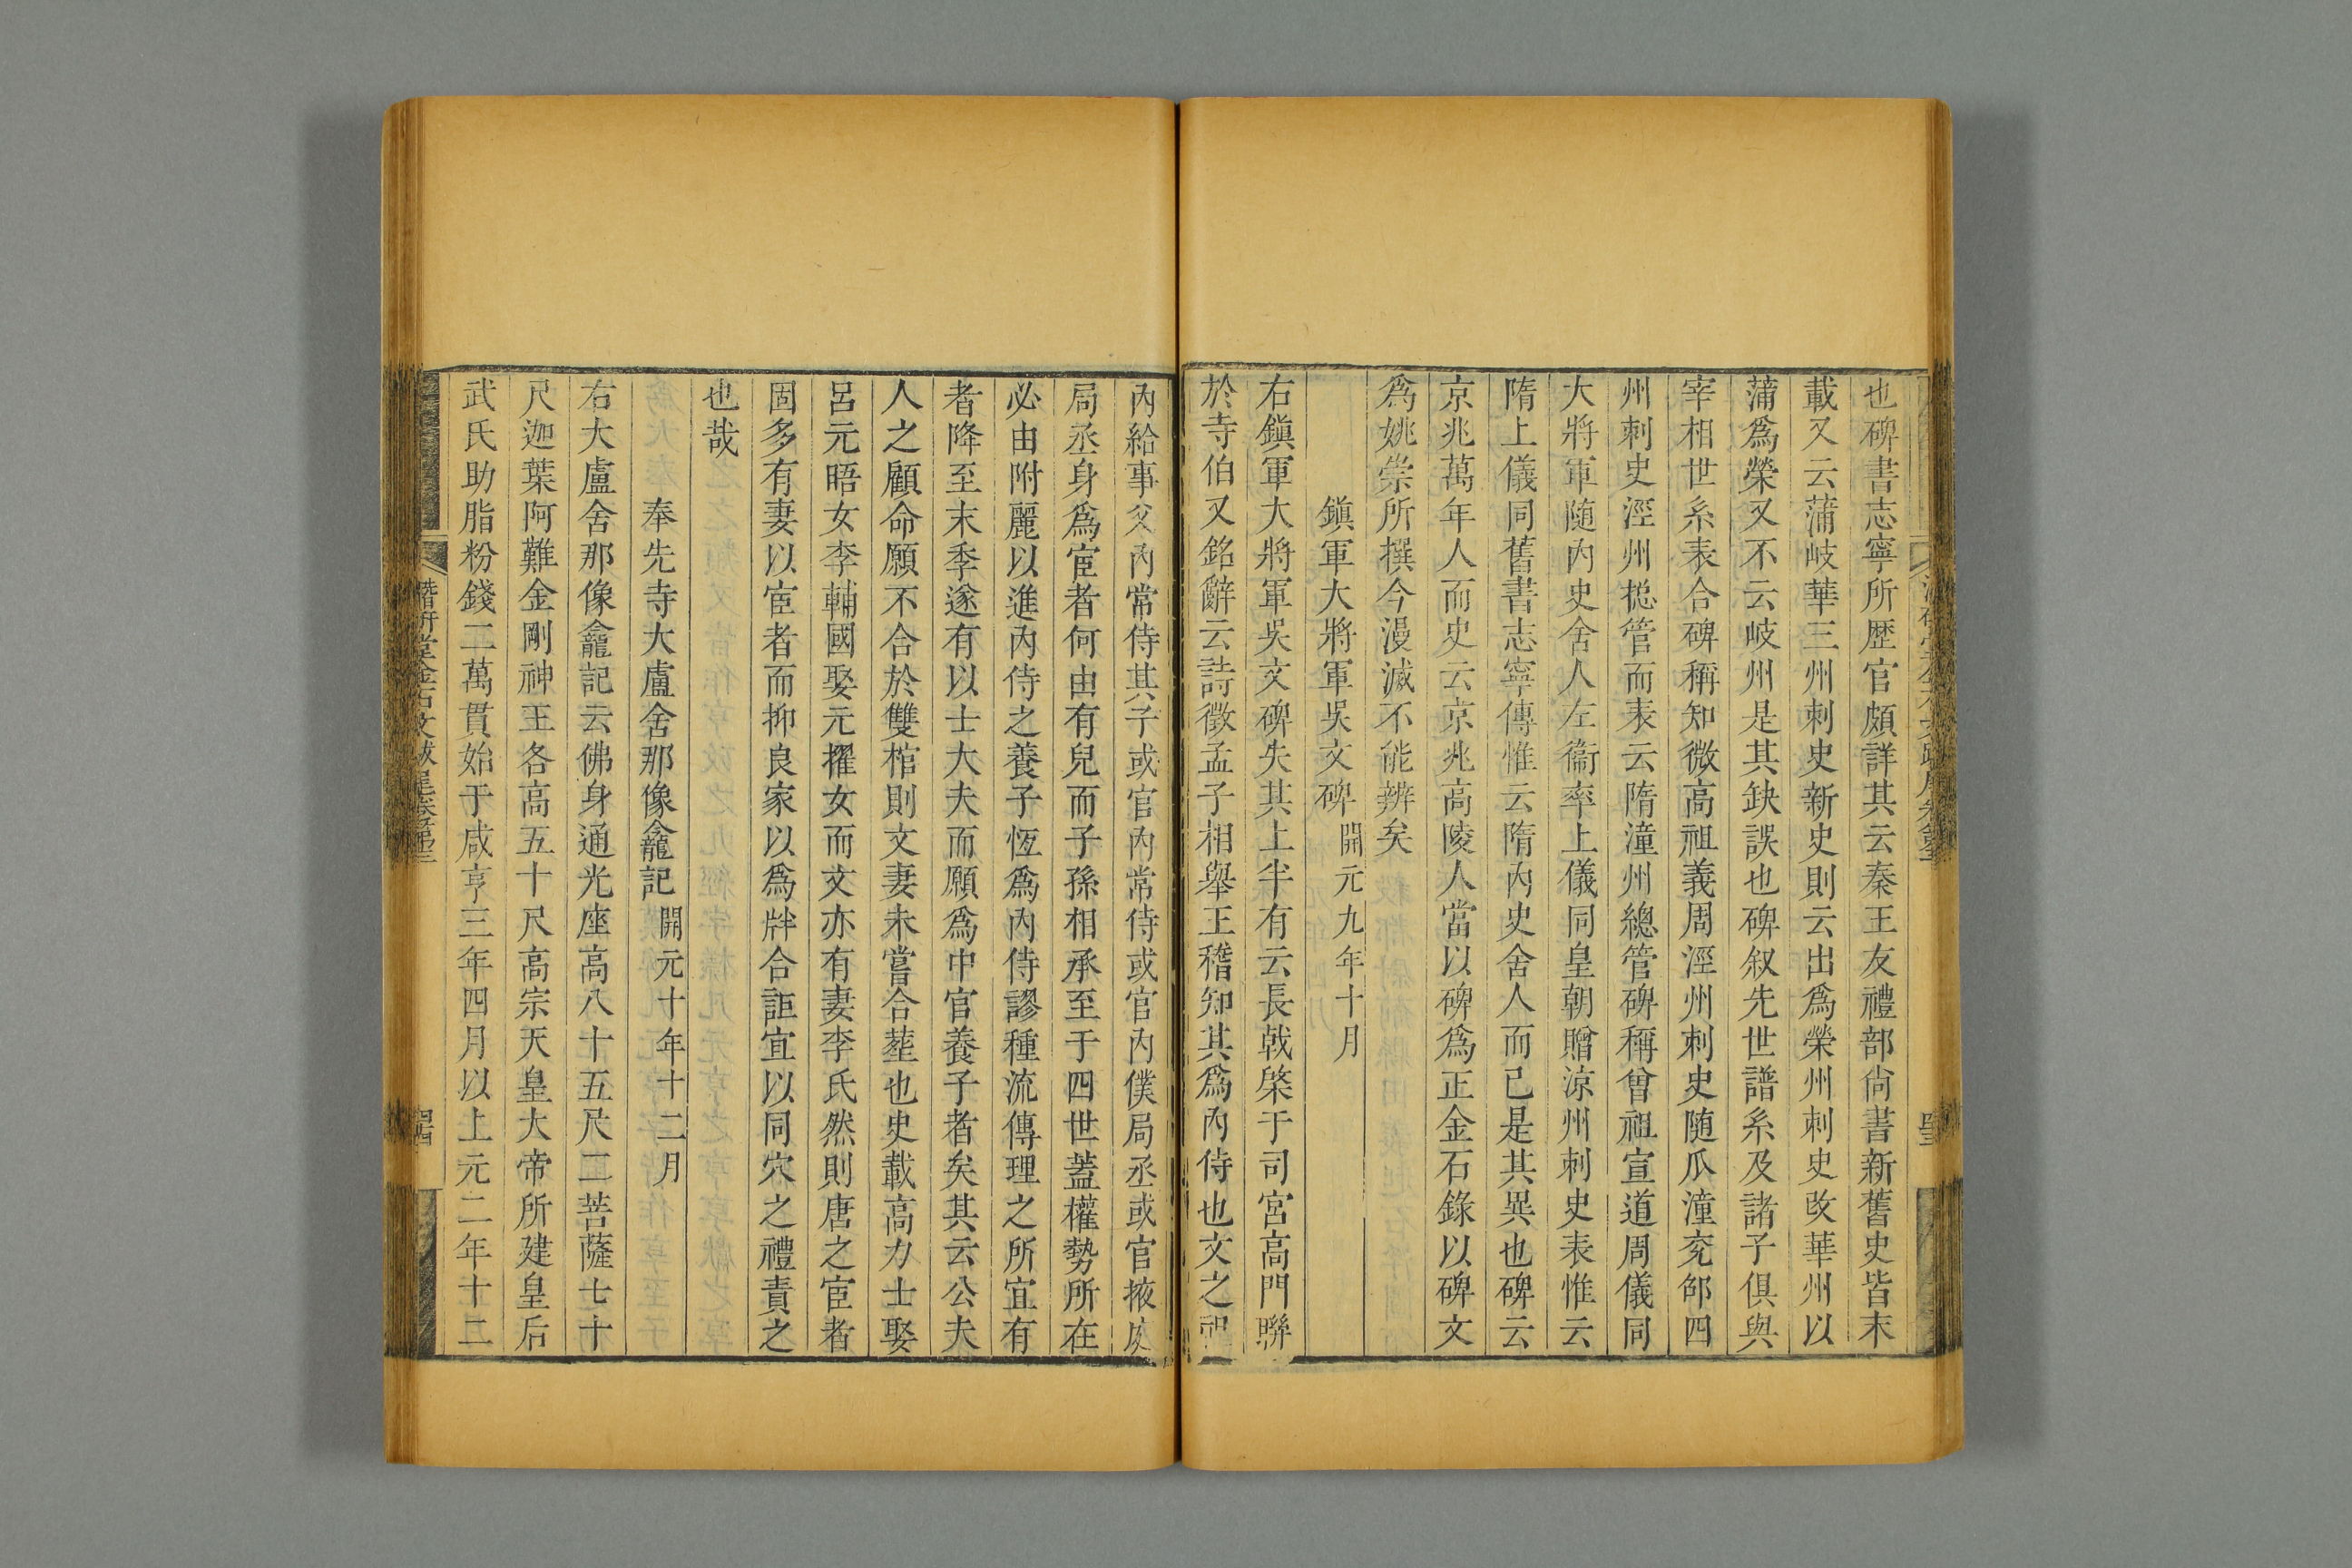 也碑書志寧所歷官頗詳其云秦王友禮部尚書新舊史皆未
載又云蒲岐華三州刺史新史則云出爲榮州刺史改華州以
蒲爲榮又不云岐州是其缺誤也碑叙先世譜系及諸子俱與
宰相世系表合碑稱知微高祖義周涇州刺史随瓜潼兖邠四
州刺史涇州揔管而表云隋潼州總管碑稱曾祖宣道周儀同
大將軍随內史舍人左衞率上儀同皇朝贈涼州刺史表惟云
隋上儀同舊書志寧傳惟云隋內史舍人而已是其異也碑云
京兆萬年人而史云京兆高陵人當以碑爲正金石錄以碑文
爲姚崇所撰今漫滅不能辨矣
鎭軍大將軍吳文碑 開元九年十月
右鎭軍大將軍吳文碑失其上半有云長戟棨于司宮高門聯
於寺伯又銘辭云詩徵孟子相舉王稽知其爲內侍也文之祖
內給事父內常侍其子或官內常侍或官內僕局丞或官掖庭
局丞身爲宦者何由有兒而子孫相承至于四世蓋權勢所在
必由附麗以進內侍之養子恆爲內侍謬種流傳理之所宜有
者降至末季遂有以士大夫而願爲中官養子者矣其云公夫
人之顧命願不合於雙棺則文妻未嘗合塟也史載高力士娶
呂元晤女李輔國娶元擢女而文亦有妻李氏然則唐之宦者
固多有妻以宦者而抑良家以爲牉合詎宜以同穴之禮責之
也哉
奉先寺大盧舍那像龕記 開元十年十二月
右大盧舍那像龕記云佛身通光座高八十五尺二菩薩七十
尺迦葉阿難金剛神王各高五十尺高宗天皇大帝所建皇后
武氏助脂粉錢二萬貫始于咸亨三年四月以上元二年十二